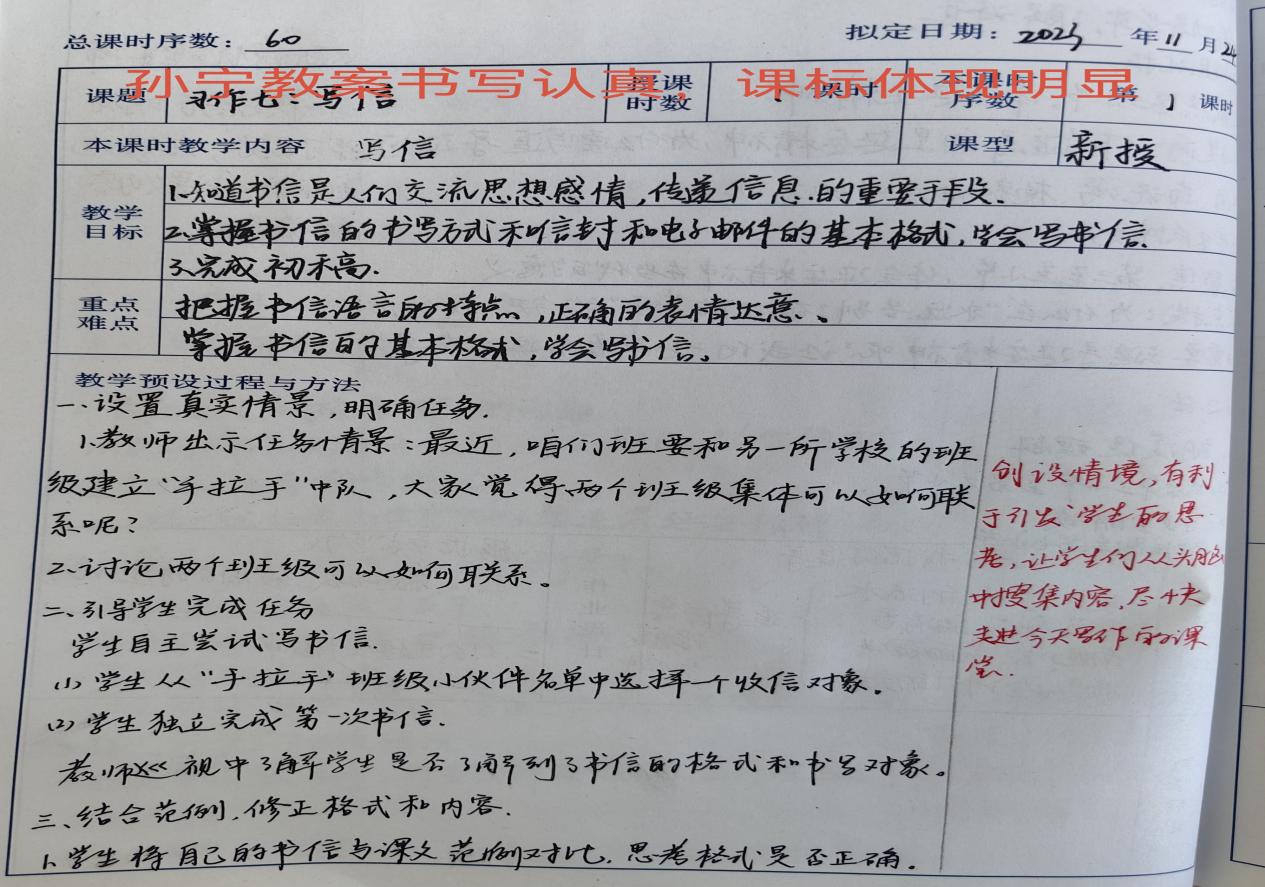 总课时序数： 60 拟定日期：2023年11月24
孙宁教案书写认真，课标体现明显
课题 习作七：写信 授课时数 1 课时 本课时序数 第 1 课时
本课时教学内容 写信 课型 新授
教学目标
1.知道书信是人们交流思想感情，传递信息.的重要手段.
2.掌握书信的书写方式和信封和电子邮件的基本格式，学会写书信.
3.完成初稿.
重点难点
把握书信语言的特点，正确的表情达意.、
掌握书信的基本格式，学会写书信。
教学预设过程与方法
一、设置真实情景，明确任务.
1.教师出示任务情景：最近，咱们班要和另一所学校的班
级建立“手拉手”中队，大家觉得两个班级集体可以如何联
系呢？
2.讨论两个班级可以如何联系。
二、引导学生完成任务
学生自主尝试写书信.
(1)学生从“手拉手”班级小伙伴名单中选择一个收信对象。
(2)学生独立完成第一次书信.
教师巡视中了解学生是否了解到了书信的格式和书写对象。
三、结合范例，修正格式和内容.
1.学生将自己的书信与课文范例对比，思考格式是否正确。
创设情境，有利
于引发学生的思
考，让学生们从头脑
中搜集内容，尽快
走进今天写作的课
堂.